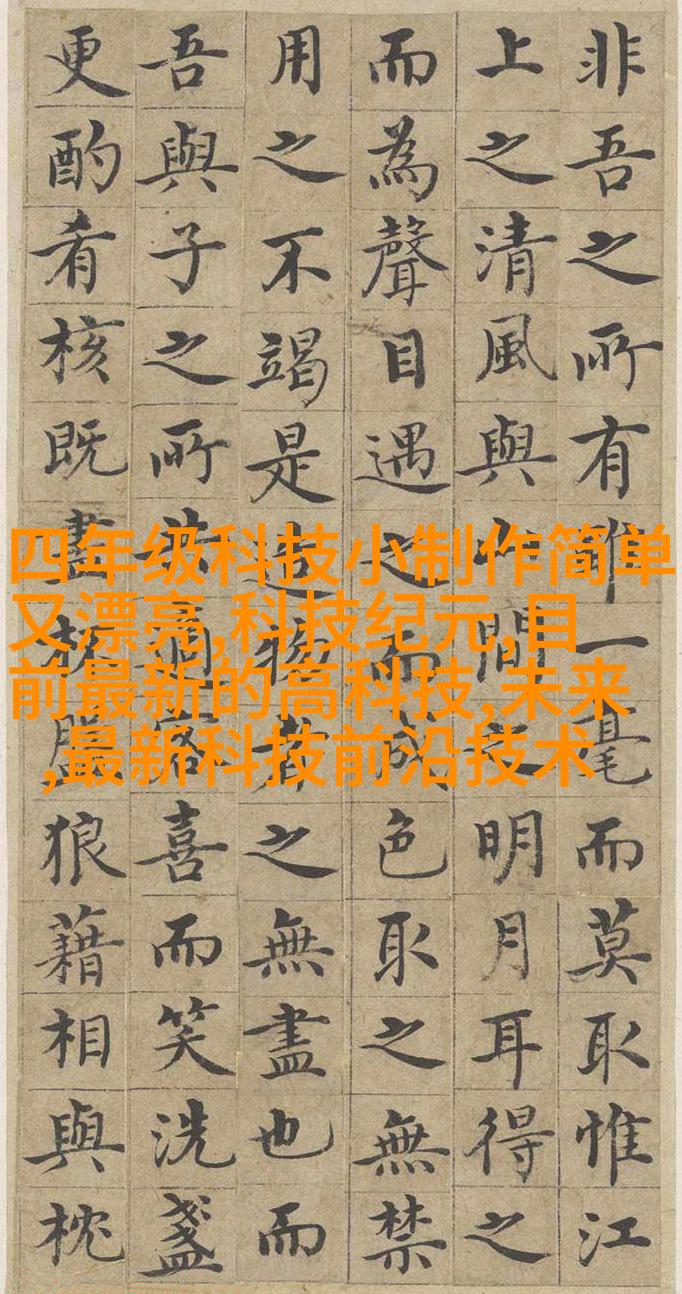 四年级科技小制作简单
又漂亮,科技纪元,目
前最新的高科技,未来
,最新科技前沿技术
非吾之所有雖一毫而莫取惟江
上之清風與山間之明月耳得之
而為聲目遇之而成色取之無禁
用之不竭是造物者之無盡也而
吾與子之所共適客喜而笑洗盞
更酌肴核既盡杯盤狼藉相與枕